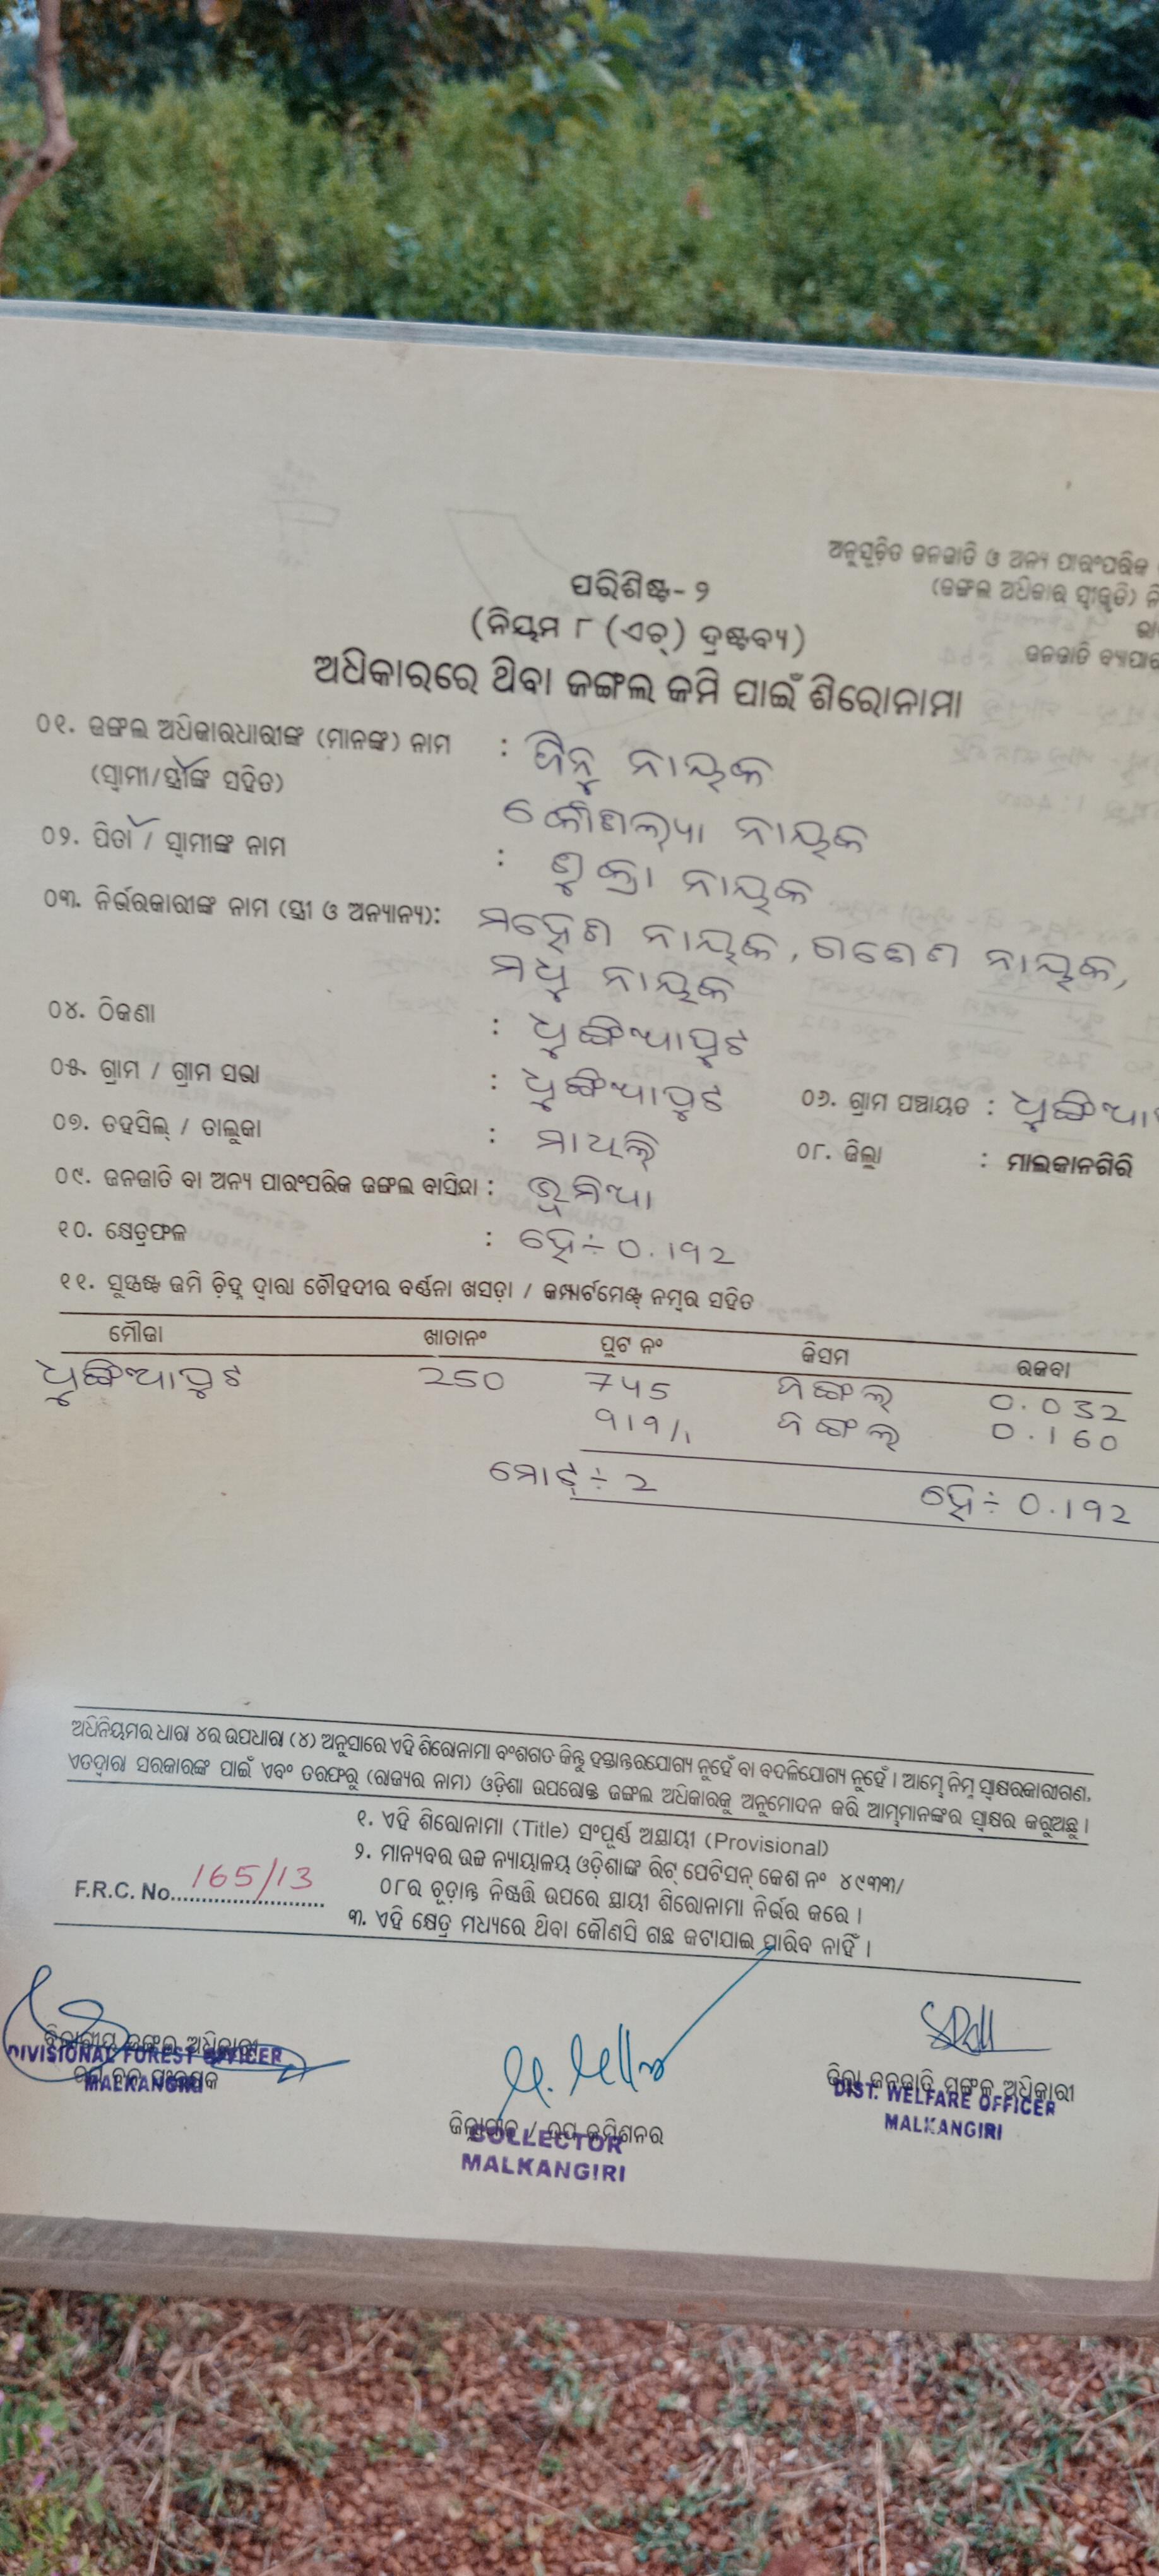 ଅନୁସୂଚିତ ଜନଜାତି ଓ ଅନ୍ୟ ପାରଂପରିକ
(ଜଙ୍ଗଲ ଅଧିକାର ସ୍ୱୀକୃତି)
ଜନଜାତି ବ୍ୟାପାର
ପରିଶିଷ୍ଟ- ୨
(ନିୟମ ୮ (ଏଚ୍) ଦ୍ରଷ୍ଟବ୍ୟ)
ଅଧିକାରରେ ଥିବା ଜଙ୍ଗଲ ଜମି ପାଇଁ ଶିରୋନାମା
୦୧. ଜଙ୍ଗଲ ଅଧିକାରଧାରୀଙ୍କ (ମାନଙ୍କ) ନାମ : ନାୟକ
(ସ୍ୱାମୀ/ସ୍ତ୍ରୀଙ୍କ ସହିତ) କୌଶଲ୍ୟା ନାୟକ
୦୨. ପିତା / ସ୍ୱାମୀଙ୍କ ନାମ : ଶୁକ୍ରା ନାୟକ
୦୩. ନିର୍ଭରକାରୀଙ୍କ ନାମ (ସ୍ତ୍ରୀ ଓ ଅନ୍ୟାନ୍ୟ): ମହେଶ ନାୟକ, ଗଣେଶ ନାୟକ,
ମଧୁ ନାୟକ
୦୪. ଠିକଣା : ଧୁଙ୍ଗିଆପୁଟ
୦୫. ଗ୍ରାମ / ଗ୍ରାମ ସଭା : ଧୁଙ୍ଗିଆପୁଟ ୦୬. ଗ୍ରାମ ପଞ୍ଚାୟତ : ଧୁଙ୍ଗିଆ
୦୭. ତହସିଲ୍ / ତାଲୁକା : ମାଥିଲି ୦୮. ଜିଲ୍ଲା : ମାଲକାନଗିରି
୦୯. ଜନଜାତି ବା ଅନ୍ୟ ପାରଂପରିକ ଜଙ୍ଗଲ ବାସିନ୍ଦା : ଭୂମିଆ
୧୦. କ୍ଷେତ୍ରଫଳ : ହେ÷ 0.192
୧୧. ସୁସ୍ପଷ୍ଟ ଜମି ଚିହ୍ନ ଦ୍ୱାରା ଚୌହଦୀର ବର୍ଣ୍ଣନା ଖସଡ଼ା / କମ୍ପାର୍ଟମେଣ୍ଟ ନମ୍ବର ସହିତ
ମୌଜା ଖାତାନଂ ପ୍ଲଟ ନଂ କିସମ ରକବା
ଧୁଙ୍ଗିଆପୁଟ 250 745 ଜଙ୍ଗଲ 0.032
919/1 ଜଙ୍ଗଲ 0.160
ମୋଟ୍ ÷ 2 ହେ÷ 0.192
ଅଧିନିୟମର ଧାରା ୪ର ଉପଧାରା (୪) ଅନୁସାରେ ଏହି ଶିରୋନାମା ବଂଶଗତ କିନ୍ତୁ ହସ୍ତାନ୍ତରଯୋଗ୍ୟ ନୁହେଁ ବା ବଦଳିଯୋଗ୍ୟ ନୁହେଁ । ଆମ୍ଭେ ନିମ୍ନ ସ୍ୱାକ୍ଷରକାରୀଗଣ,
ଏତଦ୍ୱାରା ସରକାରଙ୍କ ପାଇଁ ଏବଂ ତରଫରୁ (ରାଜ୍ୟର ନାମ) ଓଡ଼ିଶା ଉପରୋକ୍ତ ଜଙ୍ଗଲ ଅଧିକାରକୁ ଅନୁମୋଦନ କରି ଆମ୍ଭମାନଙ୍କର ସ୍ୱାକ୍ଷର କରୁଅଛୁ ।
୧. ଏହି ଶିରୋନାମା (Title) ସଂପୂର୍ଣ୍ଣ ଅସ୍ଥାୟୀ (Provisional)
୨. ମାନ୍ୟବର ଉଚ୍ଚ ନ୍ୟାୟାଳୟ ଓଡ଼ିଶାଙ୍କ ରିଟ୍ ପେଟିସନ୍ କେଶ ନଂ ୪୯୩୩/
୦୮ର ଚୂଡ଼ାନ୍ତ ନିଷ୍ପତ୍ତି ଉପରେ ସ୍ଥାୟୀ ଶିରୋନାମା ନିର୍ଭର କରେ ।
F.R.C. No. 165/13
୩. ଏହି କ୍ଷେତ୍ର ମଧ୍ୟରେ ଥିବା କୌଣସି ଗଛ କଟାଯାଇ ପାରିବ ନାହିଁ ।
ବିଭାଗୀୟ ଜଙ୍ଗଲ ଅଧିକାରୀ
DIVISIONAL FOREST OFFICER
MALKANGIRI
ଜିଲ୍ଲାପାଳ / ଉପ କମିଶନର
COLLECTOR
MALKANGIRI
ଜିଲ୍ଲା ଜନଜାତି ମଙ୍ଗଳ ଅଧିକାରୀ
DIST. WELFARE OFFICER
MALKANGIRI